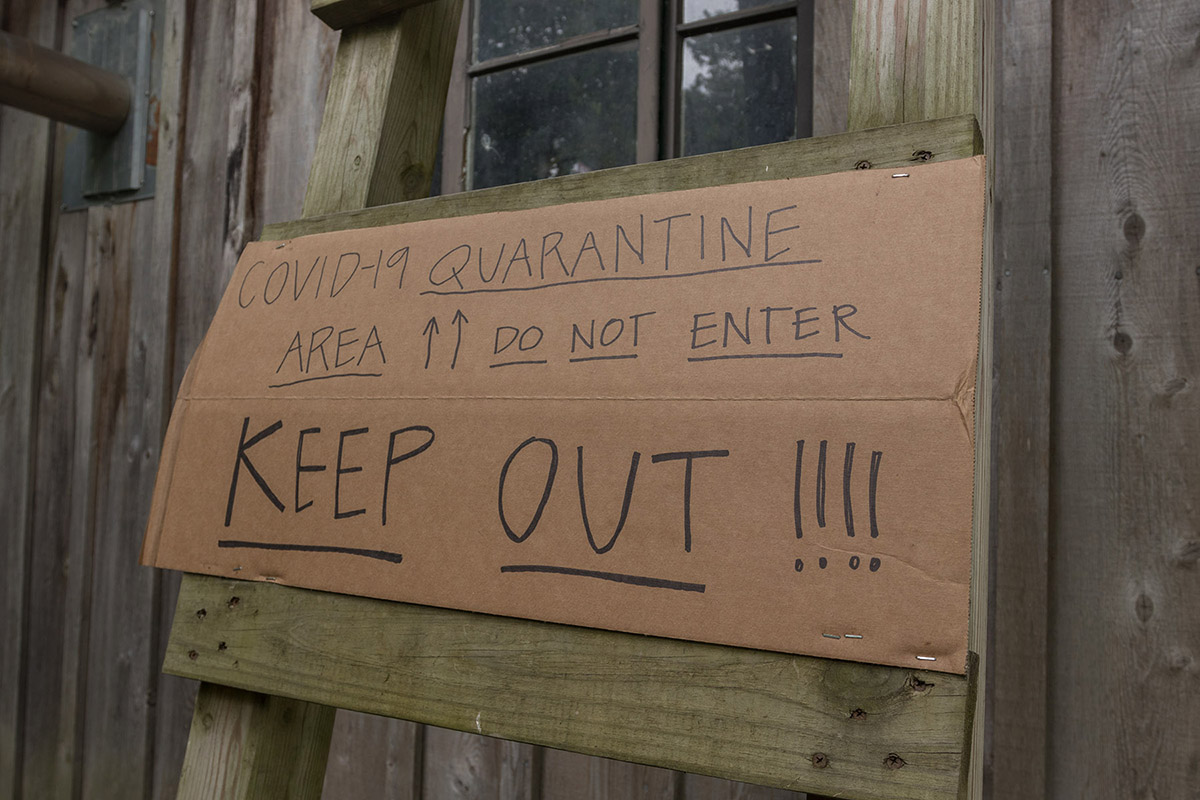 COVID-19 QUARANTINE
AREA ↑↑ DO NOT ENTER
KEEP OUT !!!!